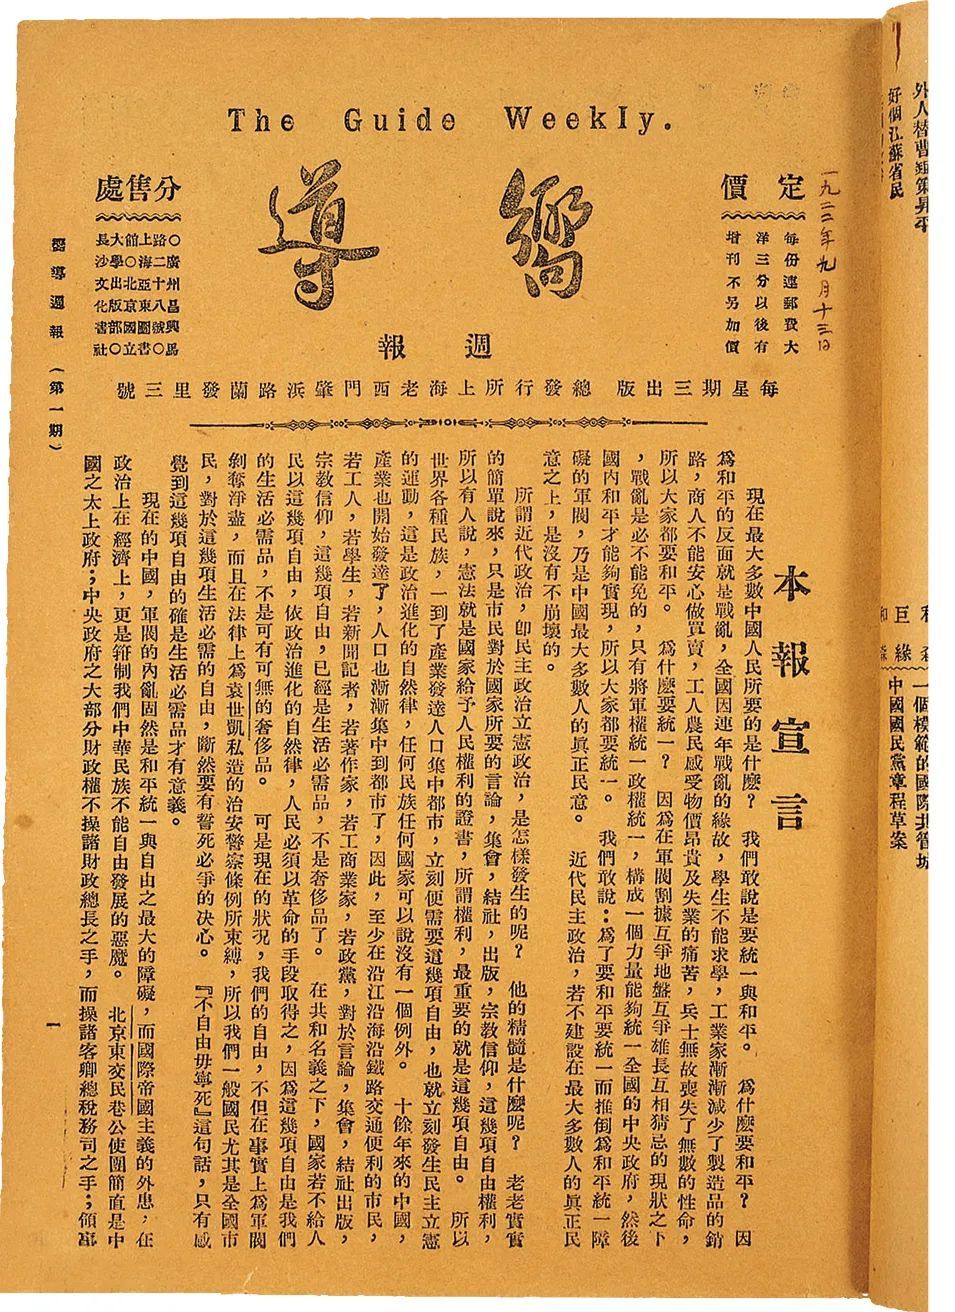 The Guide Weekly.
嚮導
週報
定價
每份連郵費大
洋三分以後有
增刊不另加價
一九二二年九月十三日
分售處
○廣州昌興馬
路二十八號○
上海亞東圖書
館○北京國立
大學出版部○
長沙文化書社
每星期三出版 總發行所上海老西門肇浜路蘭發里三號
本報宣言
現在最大多數中國人民所要的是什麽? 我們敢說是要統一與和平。 爲什麽要和平? 因
爲和平的反面就是戰亂,全國因連年戰亂的緣故,學生不能求學,工業家漸漸減少了製造品的銷
路,商人不能安心做買賣,工人農民感受物價昂貴及失業的痛苦,兵士無故喪失了無數的性命,
所以大家都要和平。 爲什麽要統一? 因爲在軍閥割據互爭地盤互爭雄長互相猜忌的現狀之下
,戰亂是必不能免的,只有將軍權統一政權統一,構成一個力量能夠統一全國的中央政府,然後
國內和平才能夠實現,所以大家都要統一。 我們敢說:爲了要和平要統一而推倒爲和平統一障
礙的軍閥,乃是中國最大多數人的眞正民意。 近代民主政治,若不建設在最大多數人的眞正民
意之上,是沒有不崩壞的。
所謂近代政治,卽民主政治立憲政治,是怎樣發生的呢? 他的精髓是什麽呢? 老老實實
的簡單說來,只是市民對於國家所要的言論,集會,結社,出版,宗教信仰,這幾項自由權利,
所以有人說,憲法就是國家給予人民權利的證書,所謂權利,最重要的就是這幾項自由。 所以
世界各種民族,一到了產業發達人口集中都市,立刻便需要這幾項自由,也就立刻發生民主立憲
的運動,這是政治進化的自然律,任何民族任何國家可以說沒有一個例外。 十餘年來的中國,
產業也開始發達了,人口也漸漸集中到都市了,因此,至少在沿江沿海沿鐵路交通便利的市民,
若工人,若學生,若新聞記者,若著作家,若工商業家,若政黨,對於言論,集會,結社出版,
宗教信仰,這幾項自由,已經是生活必需品,不是奢侈品了。 在共和名義之下,國家若不給人
民以這幾項自由,依政治進化的自然律,人民必須以革命的手段取得之,因爲這幾項自由是我們
的生活必需品,不是可有可無的奢侈品。 可是現在的狀況,我們的自由,不但在事實上爲軍閥
剝奪淨盡,而且在法律上爲袁世凱私造的治安警察條例所束縛,所以我們一般國民尤其是全國市
民,對於這幾項生活必需的自由,斷然要有誓死必爭的決心。 『不自由毋寧死』這句話,只有感
覺到這幾項自由的確是生活必需品才有意義。
現在的中國,軍閥的內亂固然是和平統一與自由之最大的障礙,而國際帝國主義的外患,在
政治上在經濟上,更是箝制我們中華民族不能自由發展的惡魔。 北京東交民巷公使團簡直是中
國之太上政府;中央政府之大部分財政權不操諸財政總長之手,而操諸客卿總稅務司之手;領事
嚮導週報 (第一期)
一
外人替曹錕策昇平
好個江蘇省民
一個模範的國際共管城
中國國民黨章程草案